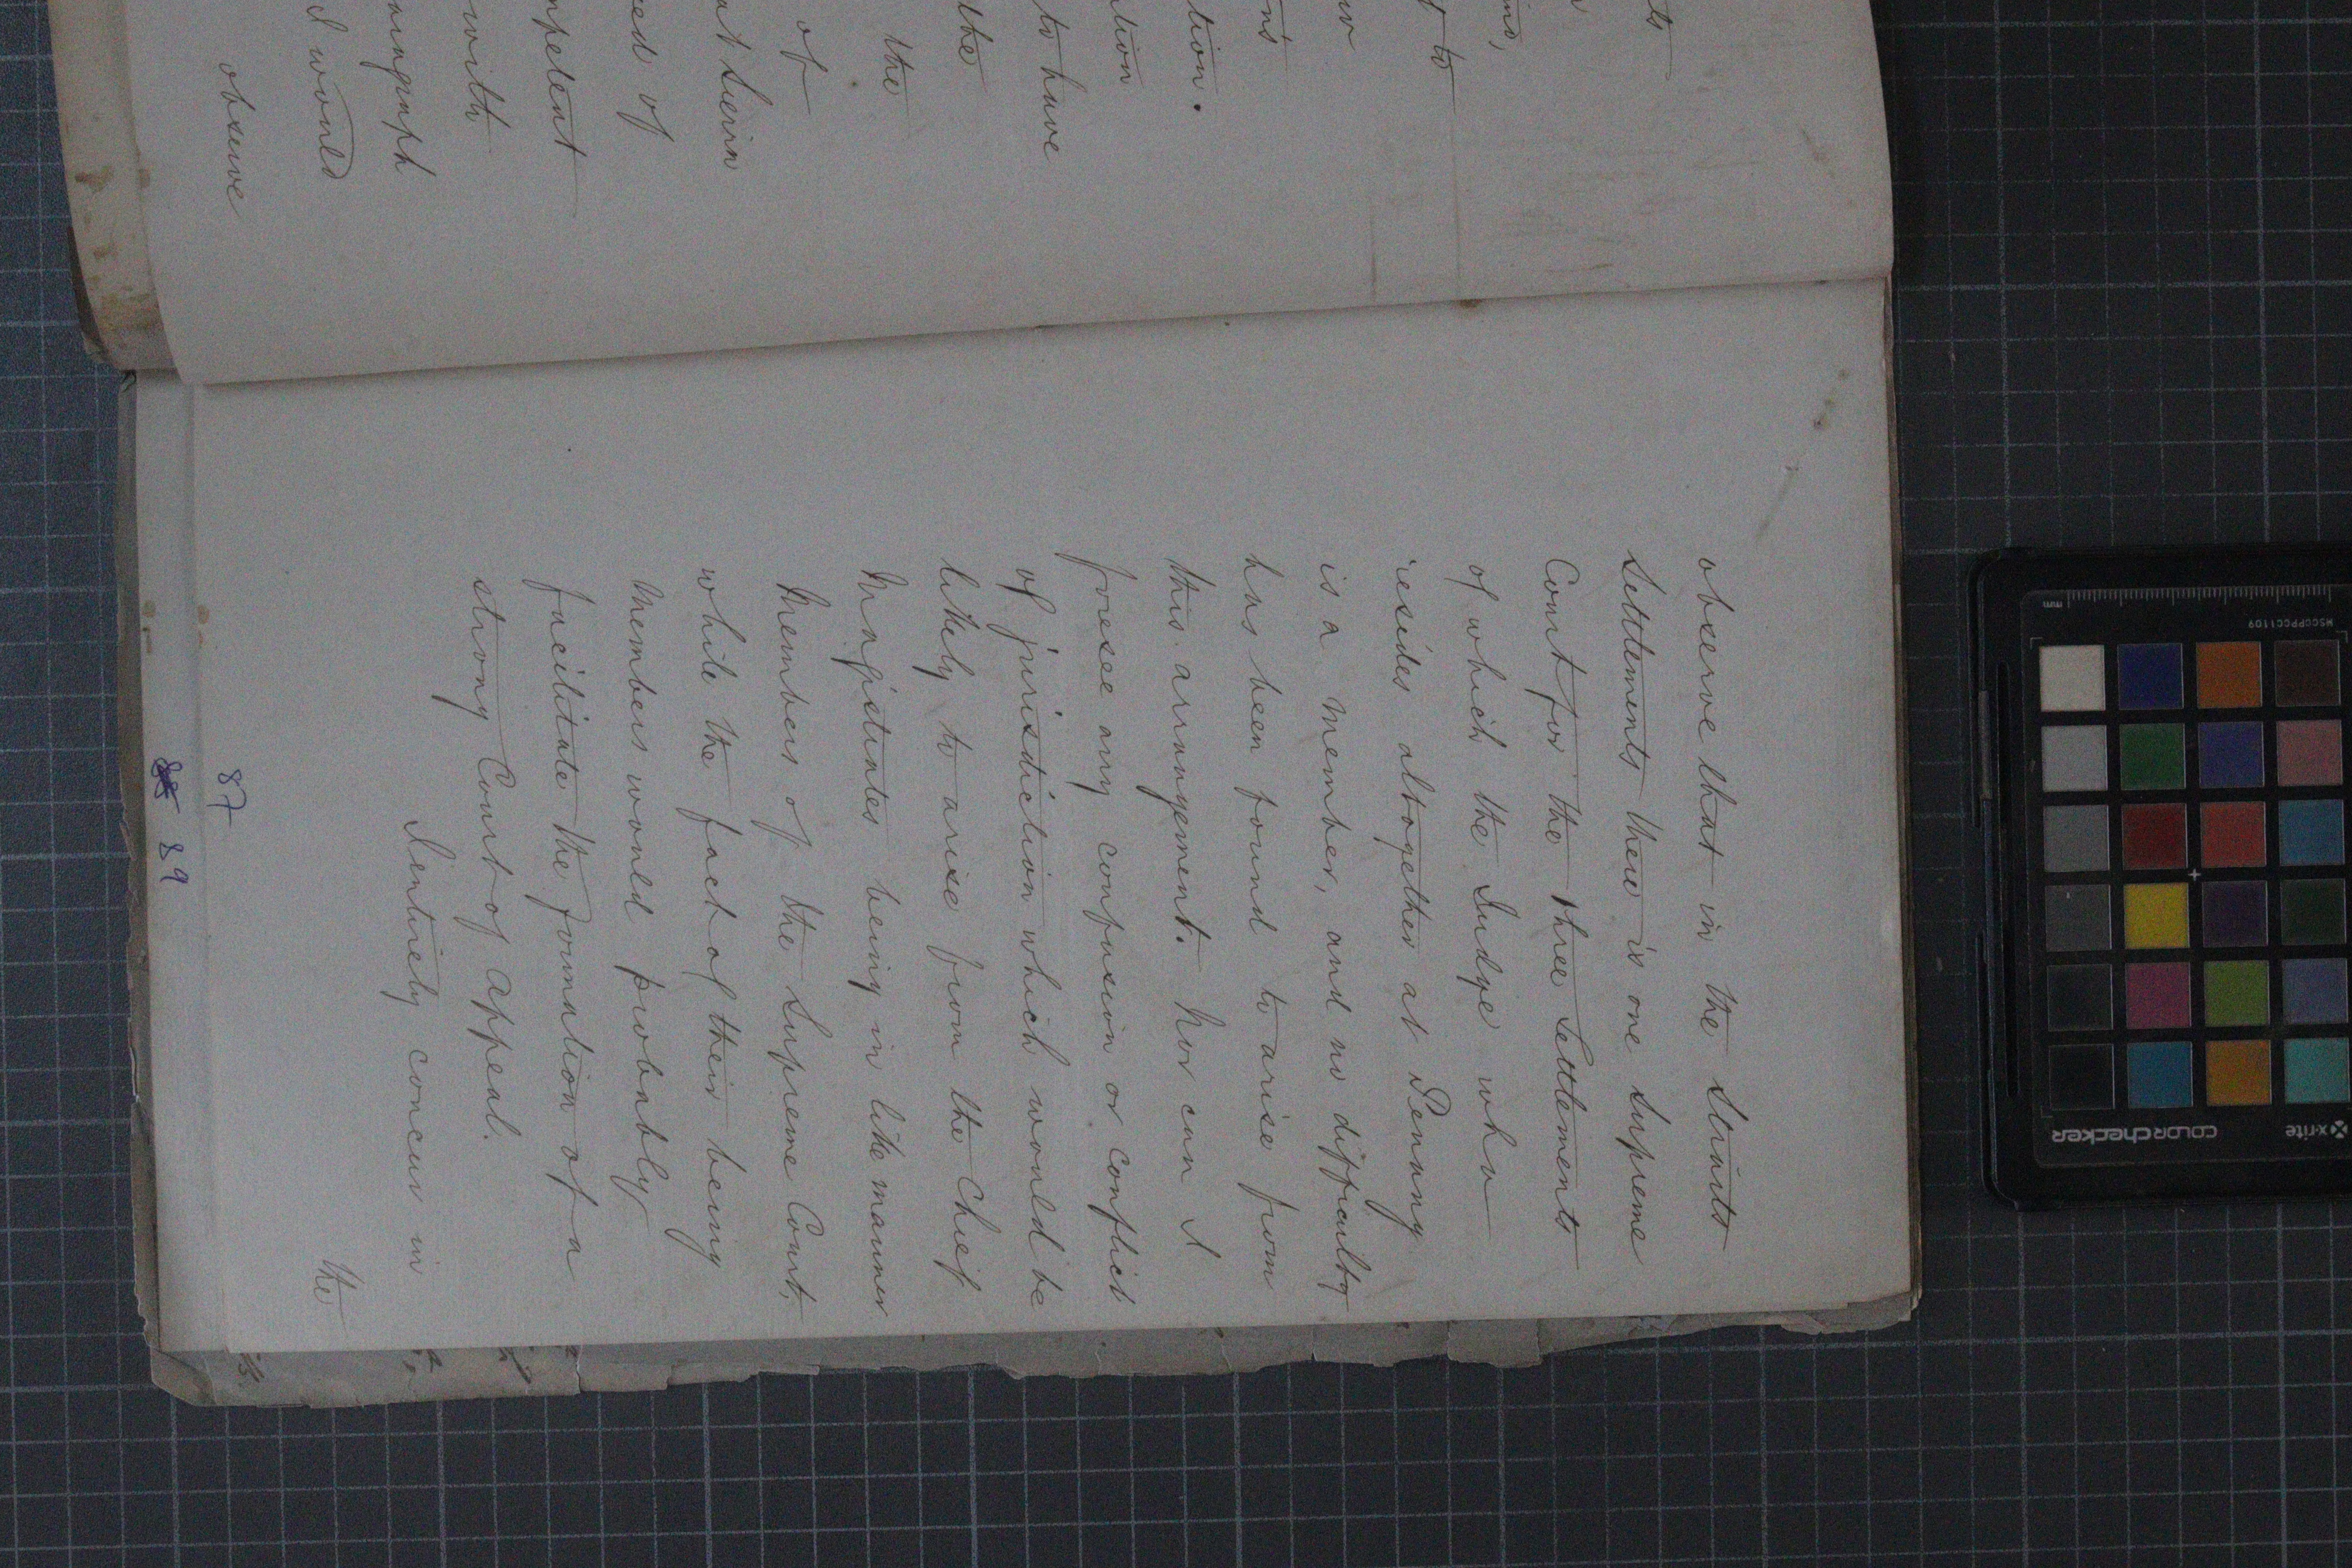 ts
to
ns
tion.
to have
the
the
of
ed of
with
I would
observe
observe that in the Straits
Settlements there is one Supreme
Court for the three Settlements
of which the Judge who
resides altogether at Penang
is a member, and no difficulty
has been found to arise from
this arrangement. Nor can I
foresee any confusion or conflict
of jurisdiction which would be
likely to arise from the Chief
Magistrates being in like manner
Members of the Supreme Court,
while the fact of their being
Members would probably
facilitate the formation of a
strong Court of Appeal.
I entirely concur in
the
87
89